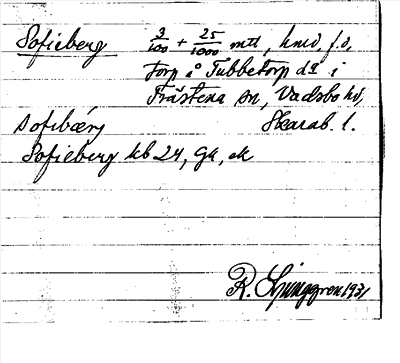 Sofieberg 3/100 + 25/1000 mtl, hmd, f.d.
torp å Tubbetorp dº i
Träståena sn, Vadsbo hd,
sofibærj Skarab. l.
Sofieberg kb 24, Gk, ek
R. Ljunggren 1931